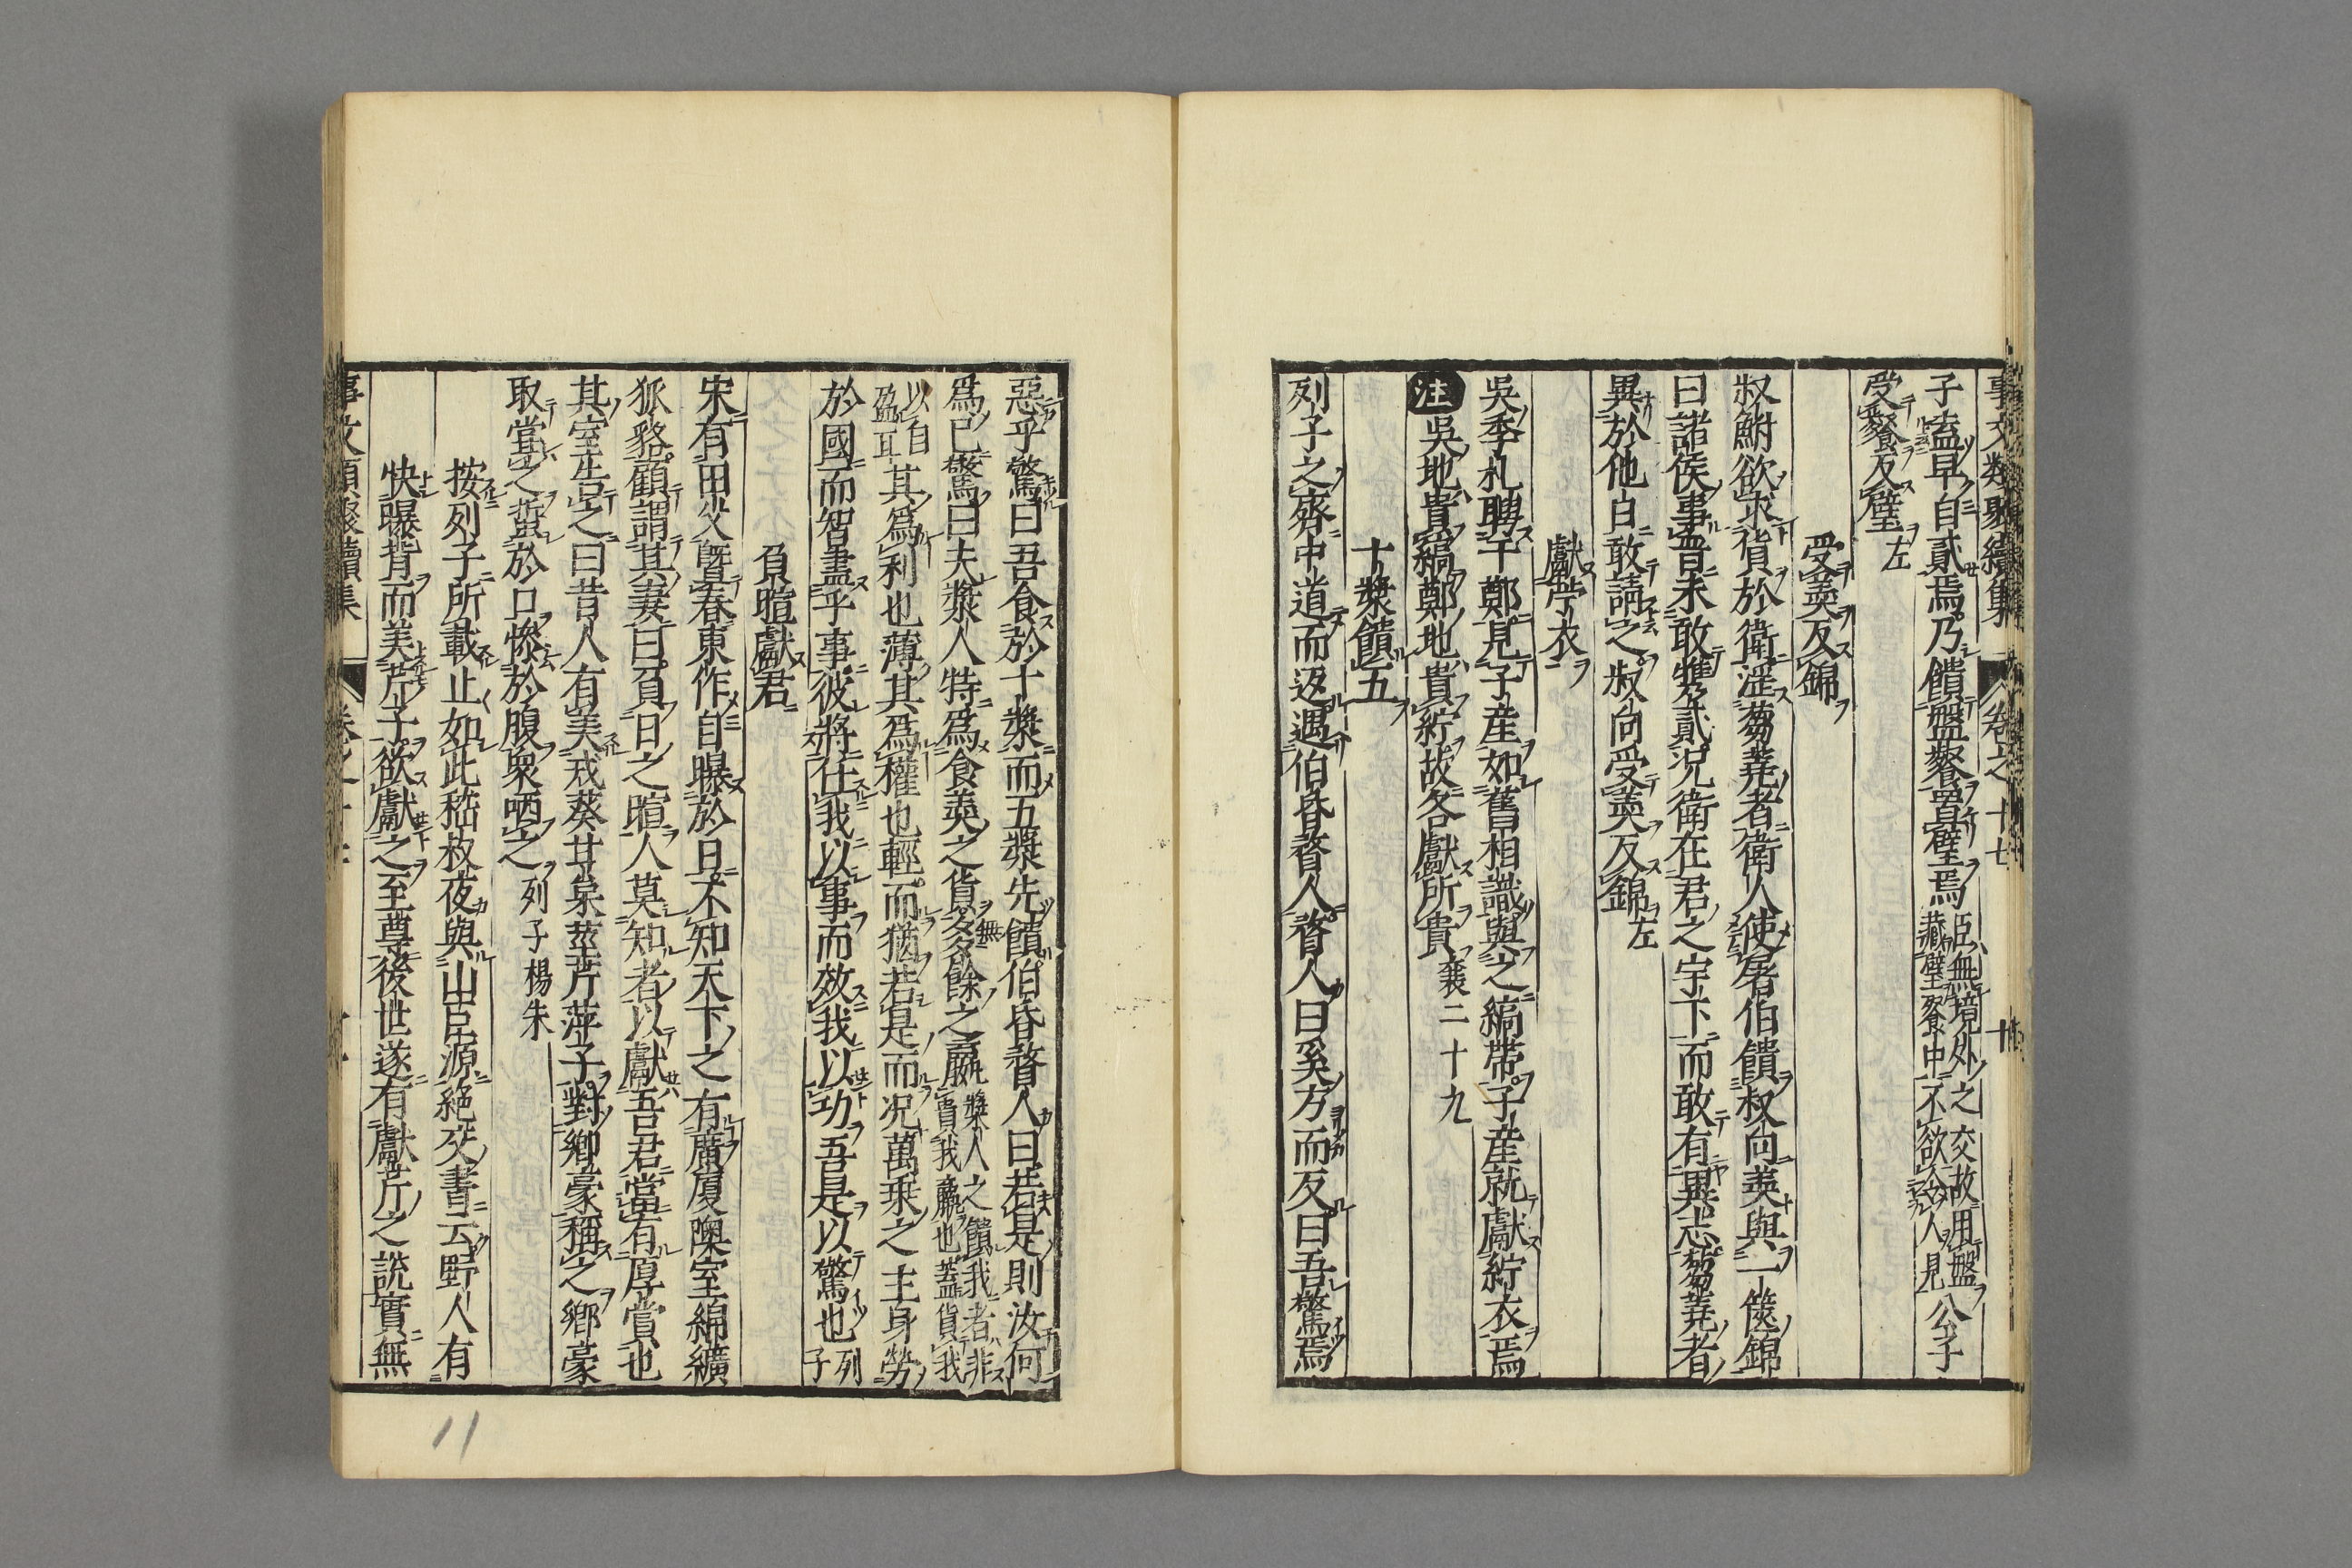 事文類聚續集 卷之十七 十
子盍早自貳焉乃饋盤飱置璧焉臣無境外之交故用盤藏璧飱中不欲令人見公子
受飱反璧左
受羮反錦
叔鮒欲求貨於衛淫芻蕘者衛人使屠伯饋叔向羮與一篋錦
曰諸侯事晉未敢攜貳况衛在君之宇下而敢有異志芻蕘者
異於他日敢請之叔向受羮反錦左
獻紵衣
吳季札聘于鄭見子産如舊相識與之縞帶子産就獻紵衣焉
注吳地貴縞鄭地貴紵故各獻所貴襄二十九
十漿饋五
列子之齊中道而返遇伯昏瞀人瞀人曰奚方而反曰吾驚焉
惡乎驚曰吾食於十漿而五漿先饋伯昏瞀人曰若是則汝何
爲已驚曰夫漿人特爲食羮之貨多餘之嬴漿人之饋我者非賣我嬴也葢貨我
以自盈耳其爲利也薄其爲權也輕而猶若是而况萬乗之主身勞
於國而智盡乎事彼將任我以事而效我以功吾是以驚也列子
負暄獻君
宋有田父曁春東作自曝於日不知天下之有廣厦隩室綿纊
狐貉顧謂其妻曰負日之暄人莫知者以獻吾君當有厚賞也
其室告之曰昔人有美戎葵甘枲莖芹萍子對鄉豪稱之鄉豪
取嘗之蜇於口慘於腹衆哂之列子楊朱
按列子所載止如此嵇叔夜與山臣源絶交書云野人有
快曝背而美芹子欲獻之至尊後世遂有獻芹之說實無
事文類聚續集
11